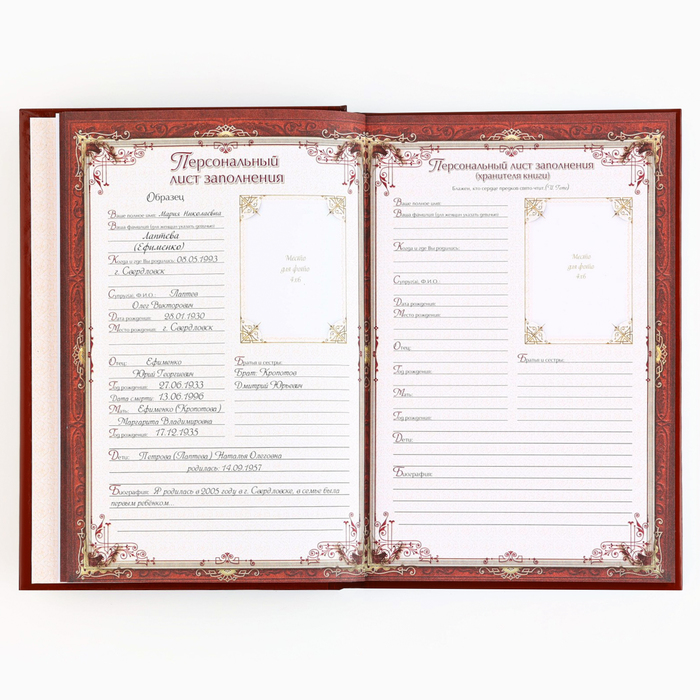 Персональный
лист заполнения
Образец
Ваше полное имя: Мария Николаевна
Ваша фамилия (для женщин указать девичью):
Лаптева
(Ефименко)
Когда и где Вы родились: 08.05.1993
г. Свердловск
Супруг(а, Ф.И.О.: Лаптов
Олег Викторович
Дата рождения: 28.01.1930
Место рождения: г. Свердловск
Место
для фото
4х6
Отец: Ефименко
Юрий Георгиевич
Год рождения: 27.06.1933
Дата смерти: 13.06.1996
Мать: Ефименко (Кропотова)
Маргарита Владимировна
Год рождения: 17.12.1935
Братья и сестры:
Брат: Кропотов
Дмитрий Юрьевич
Дети: Петрова (Лаптова) Наталья Олеговна
родилась: 14.09.1957
Биография: Я родилась в 2005 году в г. Свердловске, в семье была
первым ребёнком...
Персональный лист заполнения
(хранителя книги)
Блажен, кто сердце предков свято чтит. (И. Гете)
Ваше полное имя:
Ваша фамилия (для женщин указать девичью):
Когда и где Вы родились:
Супруг(а, Ф.И.О.:
Дата рождения:
Место рождения:
Место
для фото
4х6
Отец:
Год рождения:
Мать:
Год рождения:
Братья и сестры:
Дети:
Биография: